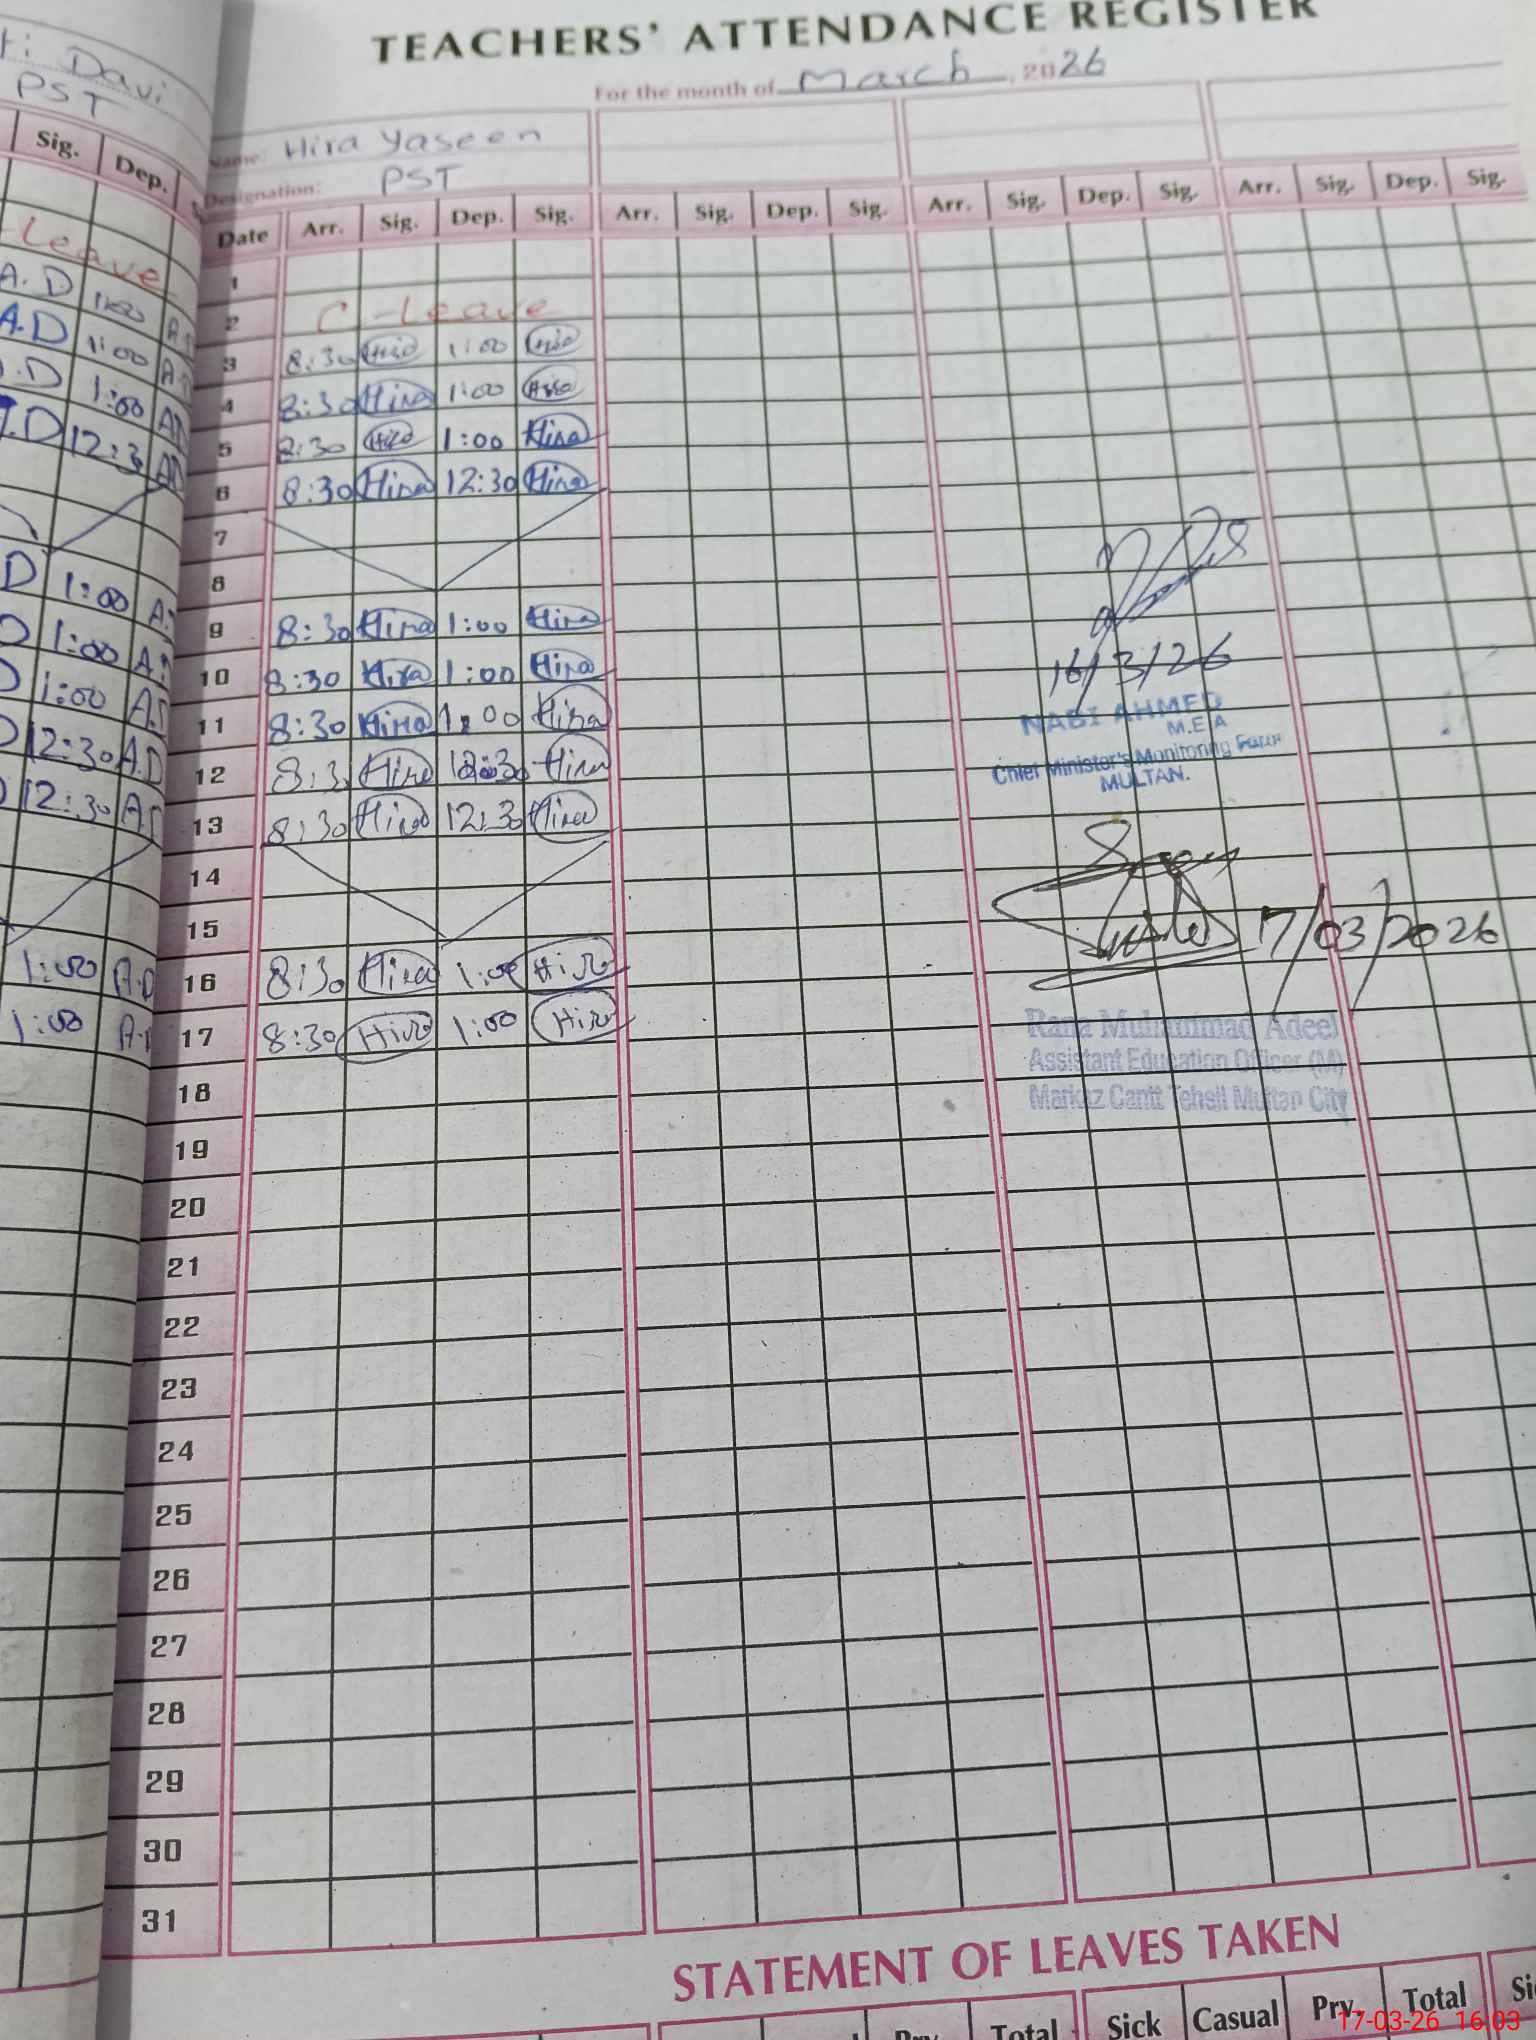 TEACHERS' ATTENDANCE REGISTER
For the month of March, 2026
Davi
PST
Sig. Dep.
Leave
A.D 1:00
A.D 1:00
.D 1:00 AD
.D 12:3 AD
D 1:00 A.
1:00 A.
1:00 A.D
12:30 A.D
12:30 A.D
1:00 A.D
1:00 A.D
Name: Hira Yaseen
Designation: PST
Date Arr. Sig. Dep. Sig. Arr. Sig. Dep. Sig. Arr. Sig. Dep. Sig. Arr. Sig. Dep. Sig.
1
2 C-Leave
3 8:30 Hira 1:00 Hira
4 8:30 Hira 1:00 Hira
5 8:30 Hira 1:00 Hira
6 8:30 Hira 12:30 Hira
7
8
9 8:30 Hira 1:00 Hira
10 8:30 Hira 1:00 Hira
11 8:30 Hira 1:00 Hira
12 8:3 Hira 12:30 Hira
13 8:30 Hira 12:30 Hira
14
15
16 8:30 Hira 1:00 Hira
17 8:30 Hira 1:00 Hira
18
19
20
21
22
23
24
25
26
27
28
29
30
31
16/3/26
NABI AHMED
M.E.A
Chief Minister's Monitoring Force
MULTAN.
17/03/2026
Rana Muhammad Adeel
Assistant Education Officer (M)
Markaz Cantt Tehsil Multan City
STATEMENT OF LEAVES TAKEN
Prv. Total Sick Casual Prv. Total
17-03-26 16:03